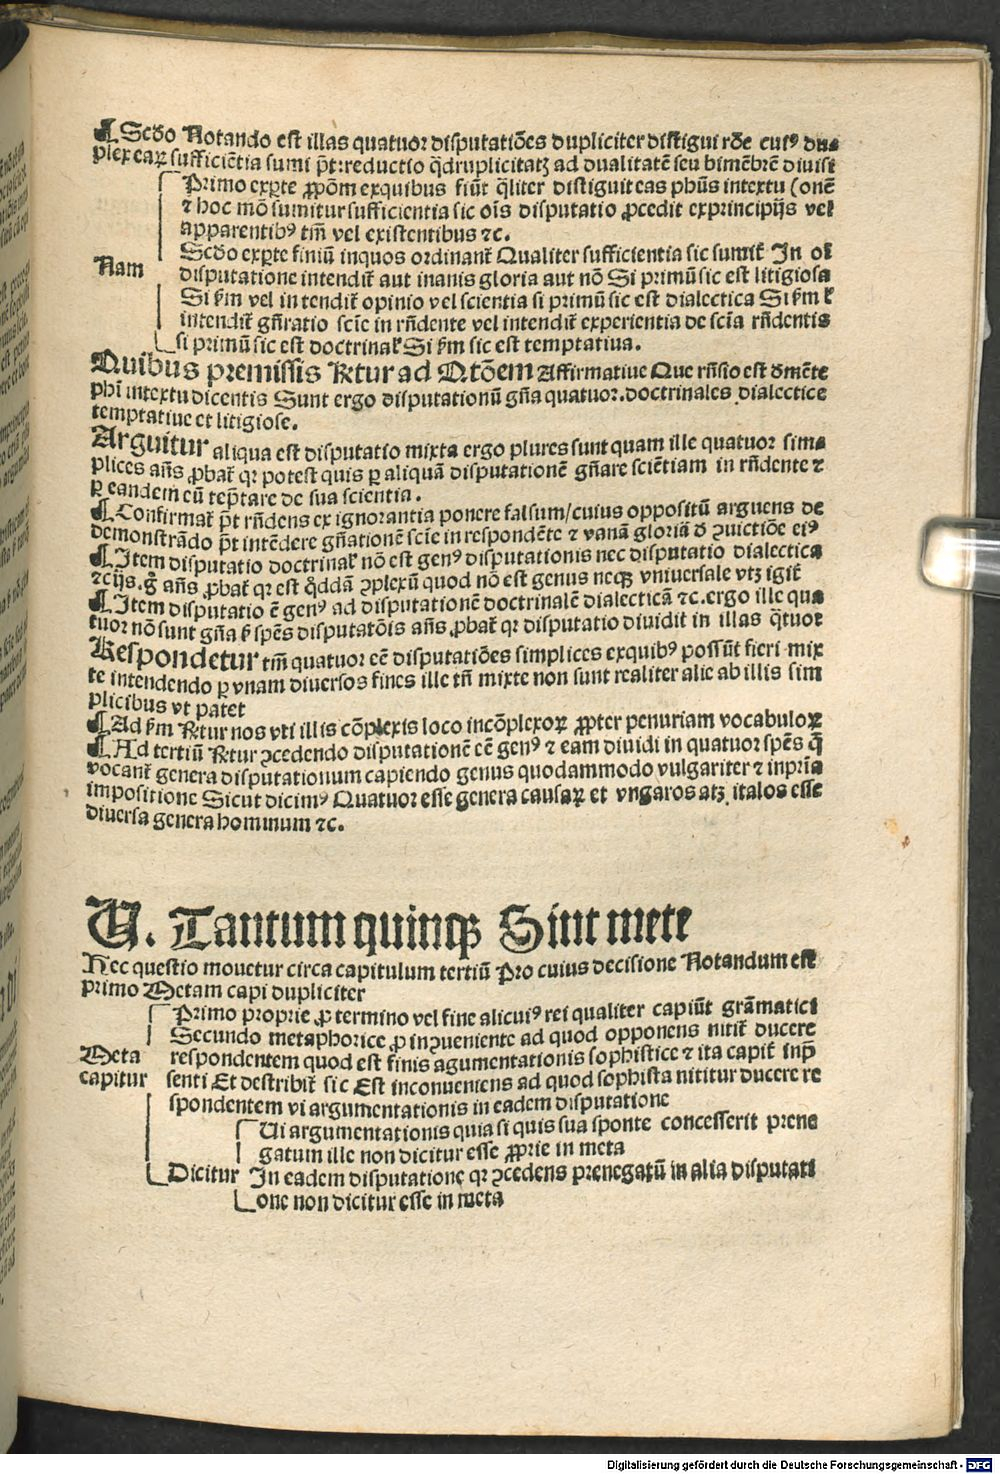 ¶ Scďo Notando est illas quatuor disputatiões dupliciter distigui rõe cuiꝰ du⸗
plex eaꝝ sufficiẽtia sumi p̃t:reductio q̃druplicitatꝫ ad dualitatẽ seu bimẽbrẽ divisi
Primo exꝑte ꝓpõm exquibus fiũt q̃liter distiguit eas phũs intextu (onẽ
⁊ hoc mõ sumitur sufficientia sic oĩs disputatio ꝓcedit exprincipijs vel
apparentibꝰ tm̃ vel existentibus ⁊c.
Scďo exꝑte finiũ inquos ordinanť Qualiter sufficientia sic sumiť In oĩ
Nam disputatione intendiť aut inanis gloria aut nõ Si primũ sic est litigiosa
Si ẜm vel in tendiť opinio vel scientia si primũ sic est dialectica Si ẜm ť
intendiť gñratio scĩe in rñdente vel intendiť experientia de scĩa rñdentis
si primũ sic est doctrinaľ Si ẜm sic est temptatiua.
Quibus premissis Rťtur ad Qtõem Affirmatiue Que rñsio est ďmẽte
phĩ intextu dicentis Sunt ergo disputationũ gña quatuor.doctrinales dialectice
temptatiue et litigiose.
Arguitur aliqua est disputatio mixta ergo plures sunt quam ille quatuor sim⸗
plices añs ꝓbať qꝛ potest quis ꝑ aliquã disputationẽ gñare sciẽtiam in rñdente ⁊
ꝑ eandem eũ tep̃tare de sua scientia.
¶ Confirmať p̃t rñdens ex ignorantia ponere falsum/cuius oppositũ arguens de
demonstrãdo p̃t intẽdere gñationẽ scĩe in respondẽte ⁊ vanã gloriã ď ꝯuictiõe eiꝰ
¶ Item disputatio doctrinaľ nõ est genꝰ disputationis nec disputatio dialectica
⁊cijs.g̃ añs ꝓbať qꝛ est q̃ddã ꝯplexũ quod nõ est genus neqꝫ vniuersale vtꝫ igiť
¶ Item disputatio ẽ genꝰ ad disputationẽ doctrinalẽ dialecticã ⁊c.ergo ille qua
tuor nõ sunt gña ẜ spẽs disputatõis añs ꝓbať qꝛ disputatio diuidit in illas q̃tuor
Respondetur tm̃ quatuor eẽ disputatiões simplices exquibꝰ possũt fieri mix
te intendendo ꝑ vnam diuersos fines ille tñ mixte non sunt realiter alie ab illis sim
plicibus vt patet
¶ Ad ẜm Rťtur nos vti illis cõplexis loco incõplexoꝝ ꝓpter penuriam vocabuloꝝ
¶ Ad tertiũ Rťtur ꝯcedendo disputationẽ eẽ genꝰ ⁊ eam diuidi in quatuor spẽs q̃
vocanť genera disputationum capiendo genus quodammodo vulgariter ⁊ inprĩa
impositione Sicut dicimꝰ Quatuor esse genera causaꝝ et vngaros atqꝫ italos esse
diuersa genera hominum ⁊c.
V. Tantum quinqꝫ Sint mete
Hec questio mouetur circa capitulum tertiũ Pro cuius decisione Notandum est
primo Metam capi dupliciter
Primo proprie ꝓ termino vel fine alicuiꝰ rei qualiter capiũt grãmatici
Secundo metaphorice ꝓ inꝯueniente ad quod opponens nitiť ducere
Meta respondentem quod est finis agumentationis sophistice ⁊ ita capiť inp̃
capitur senti Et destribiť sic Est inconueniens ad quod sophista nititur ducere re
spondentem vi argumentationis in eadem disputatione
Ui argumentationis quia si quis sua sponte concesserit prene
gatum ille non dicitur esse ꝓprie in meta
Dicitur In eadem disputatione qꝛ ꝯcedens prenegatũ in alia disputati
one non dicitur esse in meta
Digitalisierung gefördert durch die Deutsche Forschungsgemeinschaft - DFG